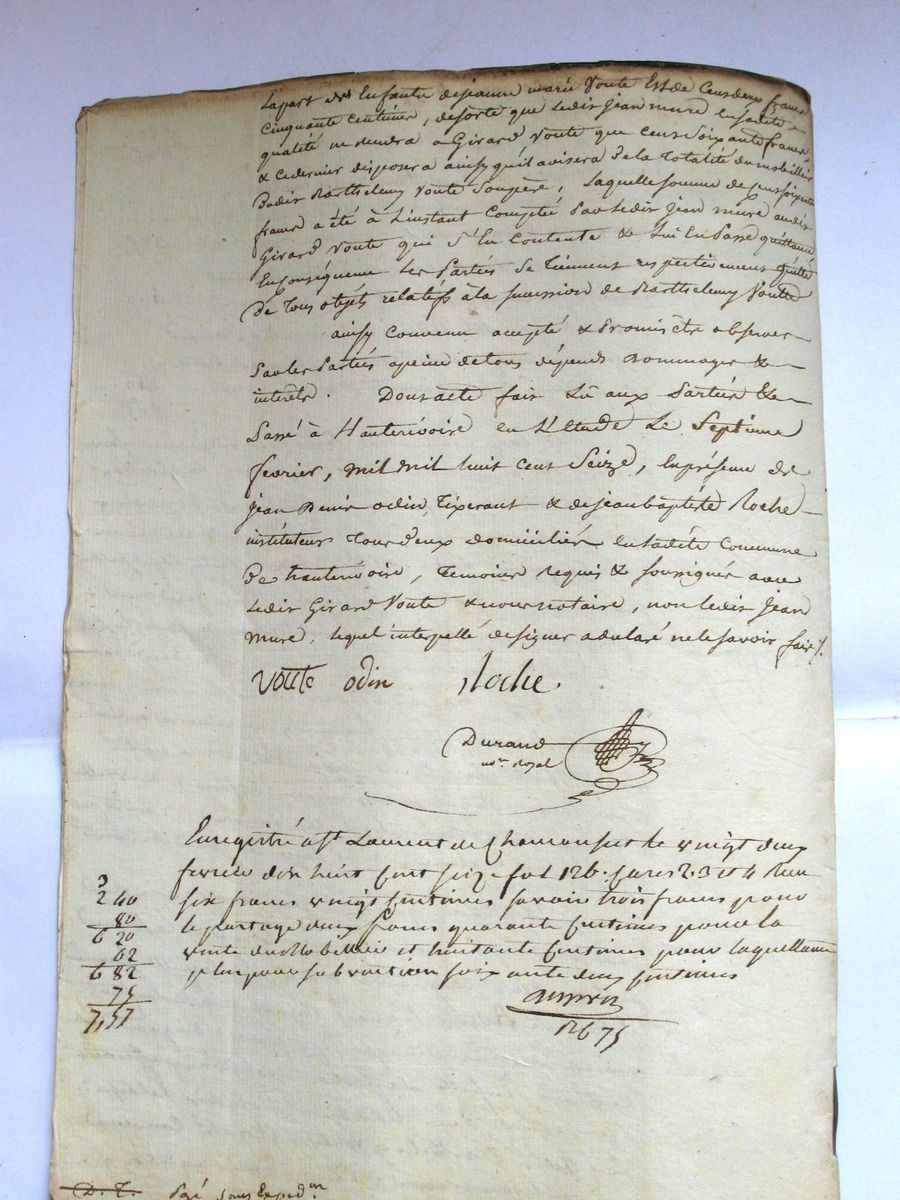 La part des Enfants de jeanne marie Voute Est de Cens deux francs
cinquante centimes, de sorte que ledit jean mure en sadite
qualité ne rendra a Girard Voute que cens soixante francs,
& ce dernier disposera ainsy qu'il avisera de la Totalité du mobillier
dudit Barthelemy Voute Son père, Laquelle somme de cens soixante
francs a été à L'instant Comptée Par Ledit jean mure audit
Girard Voute qui S'en Contente & Lui En Passe quittance
En Conséquence Les Parties Se Tiennent respectivement quitte
De Tous objets relatifs à la succession de Barthelemy Voute
ainsy convenu accepté & Promis être observer
Par les Parties a peine de tous dépends dommages &
interets. Dont acte fait Lû aux Parties &
Passé à Hauterivoire en L'Etude Le Septième
fevrier, mil huit cent Seize, En présence de
jean Denis odin, Tixerant & de jean baptiste Roche
instituteur Tous deux domiciliés en Ladite Commune
De hauterivoire, Temoins requis & soussignés avec
Ledit Girard Voute & nous notaire, non ledit jean
mure, lequel interpellé de signer a declaré ne le savoir faire /.
Voute odin Roche.
Durand
nore. Royal
Enregistré a St. Laurent de Chamousset le vingt deux
fevrier dix huit cent seize fol 126. cases 2. 3 et 4 Reçu
six francs vingt centimes savoir trois francs pour
le partage deux francs quarante centimes pour la
vente du Mobilier et huitante centimes pour la quittance
plus pour subvention soixante deux centimes
3
2 40
80
6 20
62
6 82
75
7,57
126 75
D. T. Payé Sous Exped.on